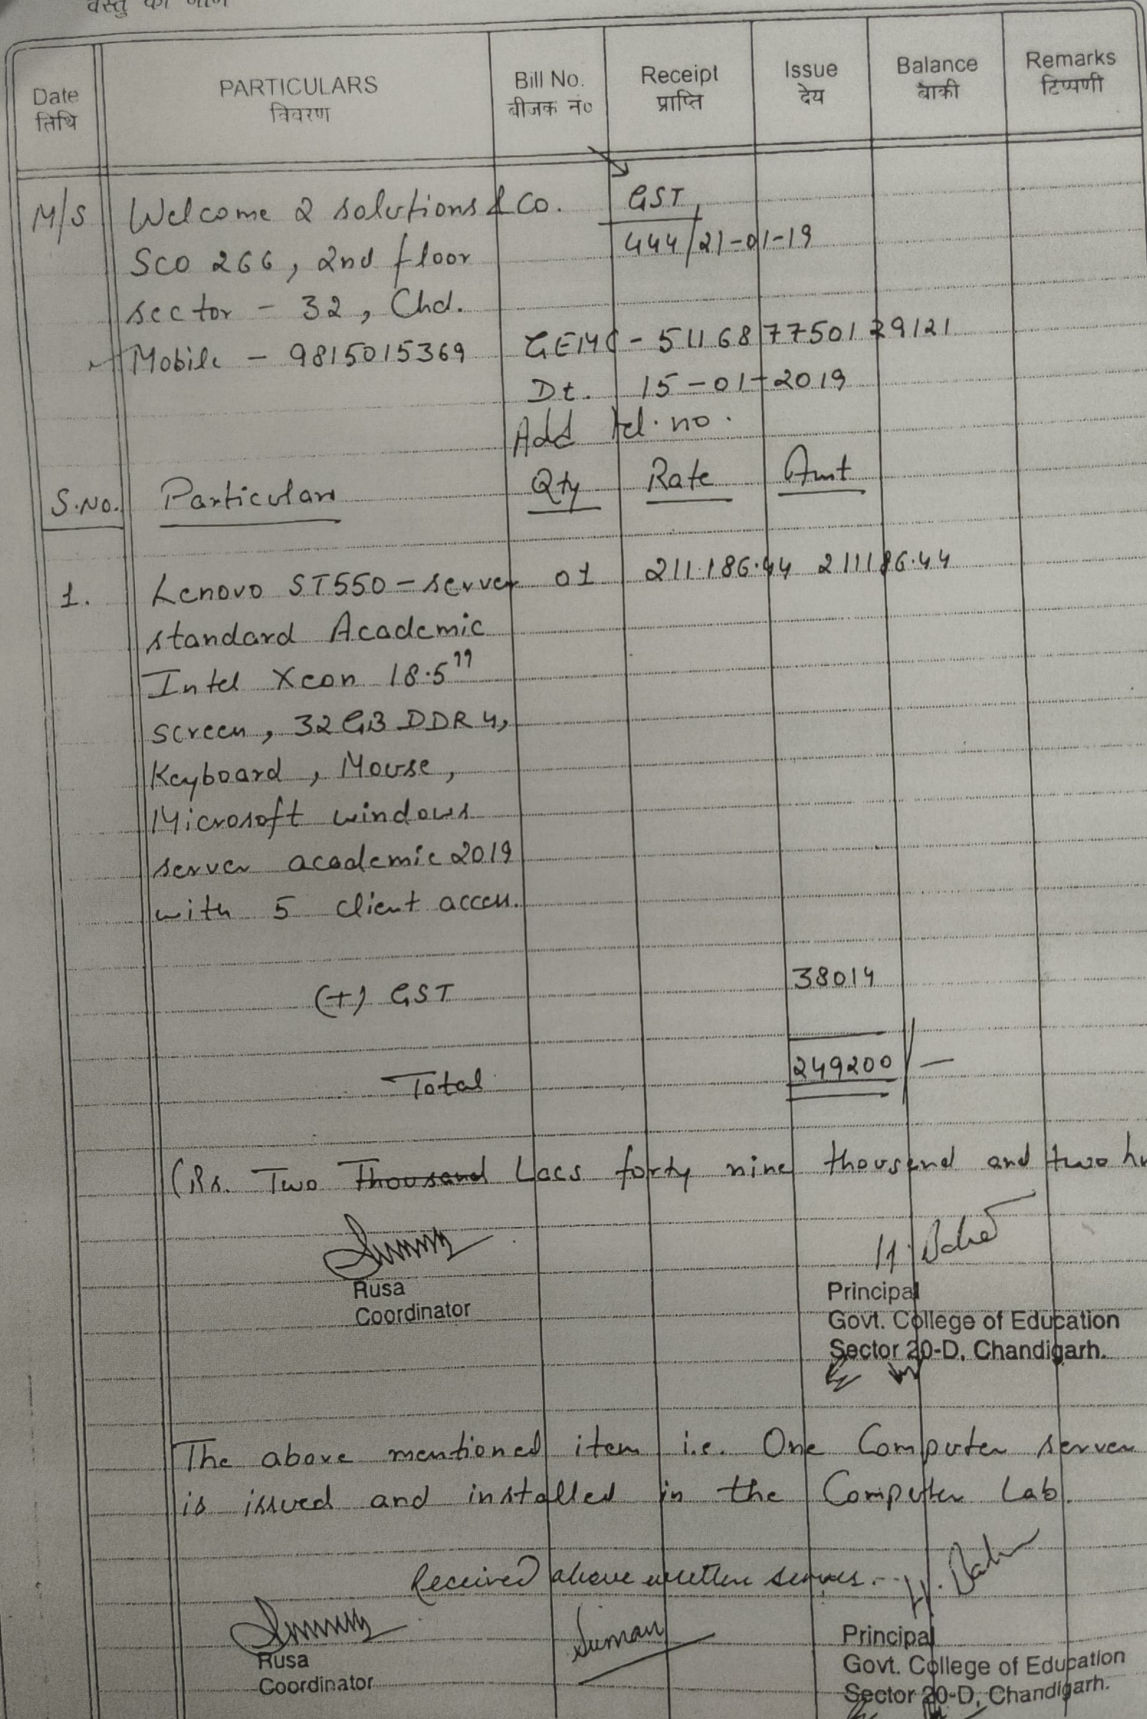 वस्तु का नाम
Date PARTICULARS Bill No. Receipt Issue Balance Remarks
तिथि विवरण बीजक नं० प्राप्ति देय बाकी टिप्पणी
M/S Welcome 2 solutions & Co. GST
SCO 266, 2nd floor 444/21-01-19
sector - 32, Chd.
Mobile - 9815015369 GEMC - 511687750129121
Dt. 15-01-2019
Add tel. no.
S.No. Particulars Qty Rate Amt
1. Lenovo ST550 - server 01 211186.44 211186.44
standard Academic
Intel Xeon 18.5"
screen, 32 GB DDR4,
Keyboard, Mouse,
Microsoft windows
server academic 2019
with 5 client access.
(+) GST 38014
Total 249200/-
(Rs. Two Thousand Lacs forty nine thousand and two hu
Rusa
Coordinator
Principal
Govt. College of Education
Sector 20-D, Chandigarh.
The above mentioned item i.e. One Computer server
is issued and installed in the Computer Lab.
Received above written server.
Suman
Rusa
Coordinator
Principal
Govt. College of Education
Sector 20-D, Chandigarh.